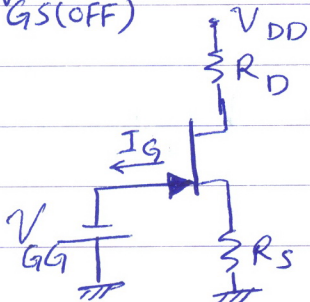 GS(OFF)
V DD
R D
I G
V GG
R S